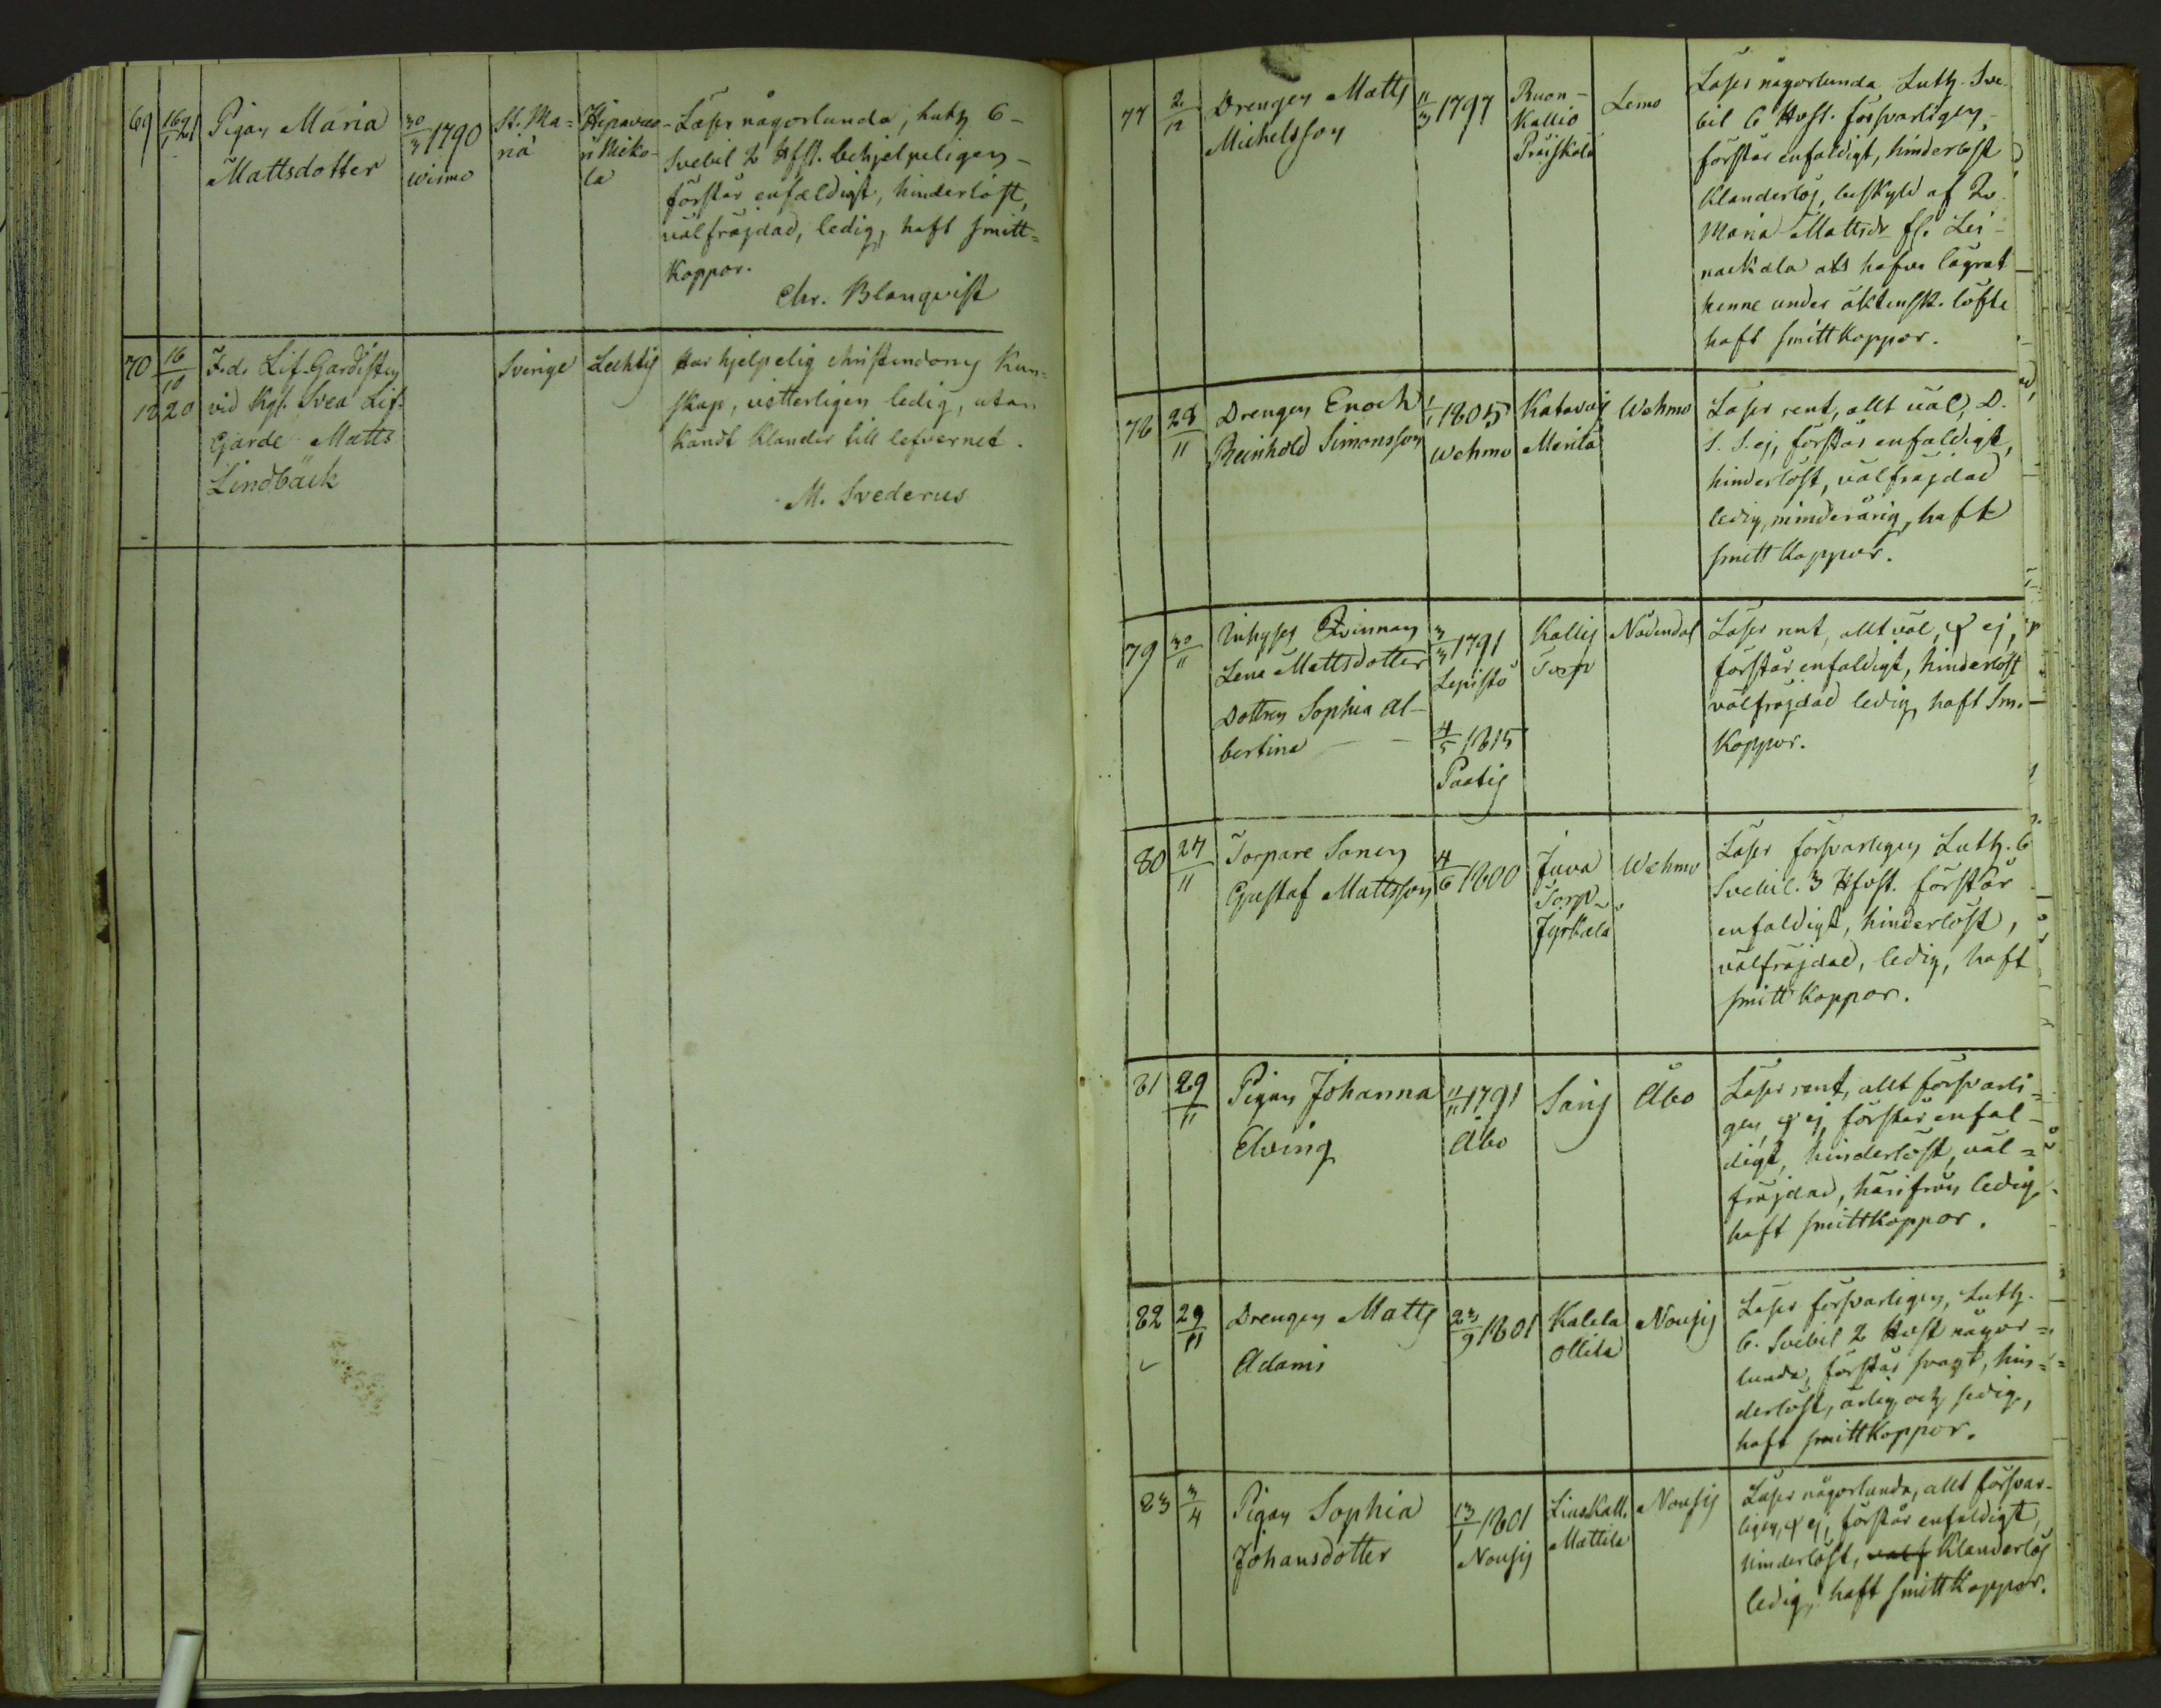 69 Pigan Maria
Mattsdotter
30/3 1790
wirmo
St. Ma=
riä
ri Miko-
la
Läser någorlunda, Luth 6-
Svebil 2 Hfst. behjelpeligen-
förstår enfaldigt, hinderlöst,
välfräjdad, ledig, haft smitt=
koppor.
Chr. Blanqvist
70 16/10 1820
F.d. Lif-Gardisten
vid Kgl. Svea Lif-
Garde Matts
Lindbäck
Sverige
Lechtis
Har hjelpelig christendoms Kun=
skap, vetterligen ledig, utan
kändt klander till lefvernet.
M. Svederus
77 2/12 Drengen Matts
Michelsson
11/3 1797
Ruon-
kallio
Präiskälä
Lemo
Läser någorlunda Luth. Sve-
bil 6 Hvst. försvarligen,
förstår enfaldigt, hinderlöst
klanderlös, beskyld af
Maria Mattsdr fr. Lei-
nackala att hafva lägrat
henne under äktensk. löfte
haft smittkoppor.
78 28/11 Drengen Enoch
Reinhold Simonsson
1805
Wehmo
Katavais
Merilä
Wehmo
Läser rent, allt väl, D.
S. S. ej, förstår enfaldigt,
hinderlöst, välfräjdad
ledig, minderårig, haft
smittkoppor.
79 30/11 Inhyses Qvinnan
Lena Mattsdotter
Dottren Sophia Al-
bertina - -
3/3 1791
Lepistö
4/5 1815
Paatis
Kallis
Torp
Nådendal
Läser rent, allt väl, ej,
förstår enfaldigt, hinderlöst
välfräjdad ledig, haft Sm.
koppor.
80 27/11 Torpare Sonen
Gustaf Mattsson
4/6 1800
Juva
Torp
Jyrkälä
Wehmo
Läser försvarligen Luth. 6
Svebil. 3 Hfvst. förstår
enfaldigt, hinderlöst,
välfräjdad, ledig, haft
smittkoppor.
81 29/11 Pigan Johanna
Elving
11/11 1791
Åbo
Saris
Åbo
Läser rent, allt försvarli=
gen, ej, förstår enfal-
digt, hinderlöst, väl=
fräjdad, härifrån ledig
haft smittkoppor.
82 29/11 Drengen Matts
Adami
23/9 1801
Kalela
Ollila
Nousis
Läser försvarligen, Luth.
6. Svebil 2 Hvst någor=
lunda, förstår svagt, hin=
derlöst, ärlig och sedig,
haft smittkoppor.
83 3/4 Pigan Sophia
Johansdotter
13/1 1801
Nousis
Liuskall.
Mattila
Nousis
Läser någorlunda, allt försvar-
ligen, ej, förstår enfaldigt
hinderlöst, välf klanderlös
ledig, haft smittkoppor.